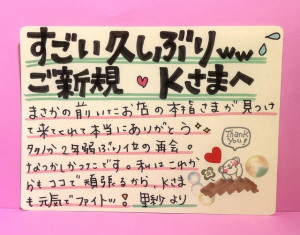 すごい久しぶりww
ご新規 Kさまへ
まさかの前いたお店の本指さまが見つけ
て来てくれて本当にありがとう
タタ分2年弱ぶりくらいの再会。
なつかしかったです。私はこれか
らもココで頑張るから、Kさま
も元気でファイトッ! 里紗より
Thank you!